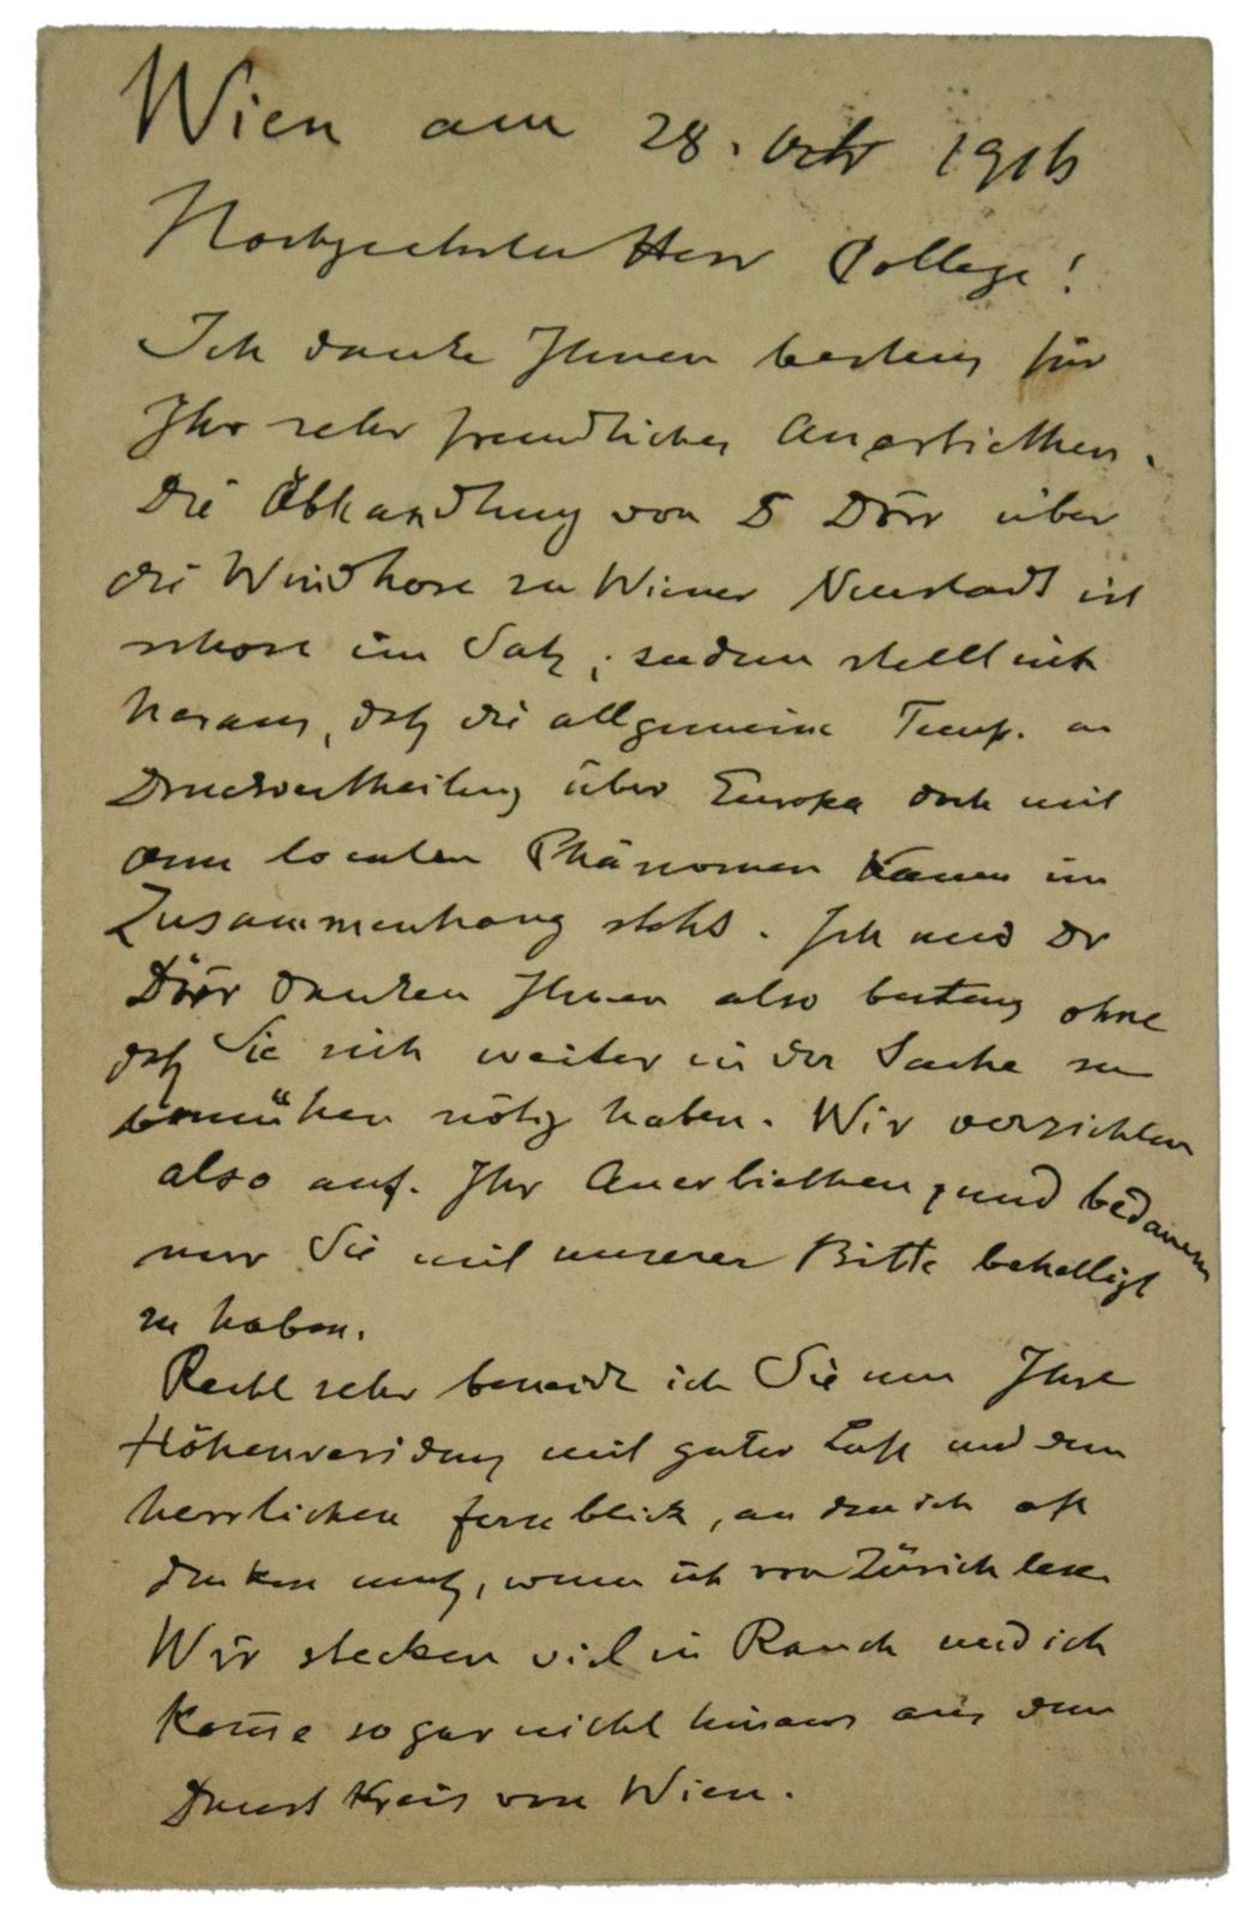 Wien am 28. Octr 1916
Hochgeehrter Herr College!
Ich danke Ihnen bestens für
Ihr sehr freundliches Anerbiethen.
Die Abhandlung von D Dörr über
die Windhose zu Wiener Neustadt ist
schon im Satz, zudem stellt sich
heraus, daß die allgemeine Temp. u
Druckvertheilung über Europa doch mit
dem localen Phänomen kaum im
Zusammenhang steht. Ich und Dr
Dörr danken Ihnen also bestens ohne
daß Sie sich weiter in der Sache zu
bemühen nötig haben. Wir verzichten
also auf Ihr Anerbiethen, und bedauern
nur Sie mit unserer Bitte behelligt
zu haben.
Recht sehr beneide ich Sie um Ihre
Höhenresidenz mit guter Luft und dem
herrlichen Fernblick, an den ich oft
denken muß, wenn ich von Zürich lese.
Wir stecken viel in Rauch und ich
kom̄e so gar nicht hinaus aus dem
Dunstkreis von Wien.